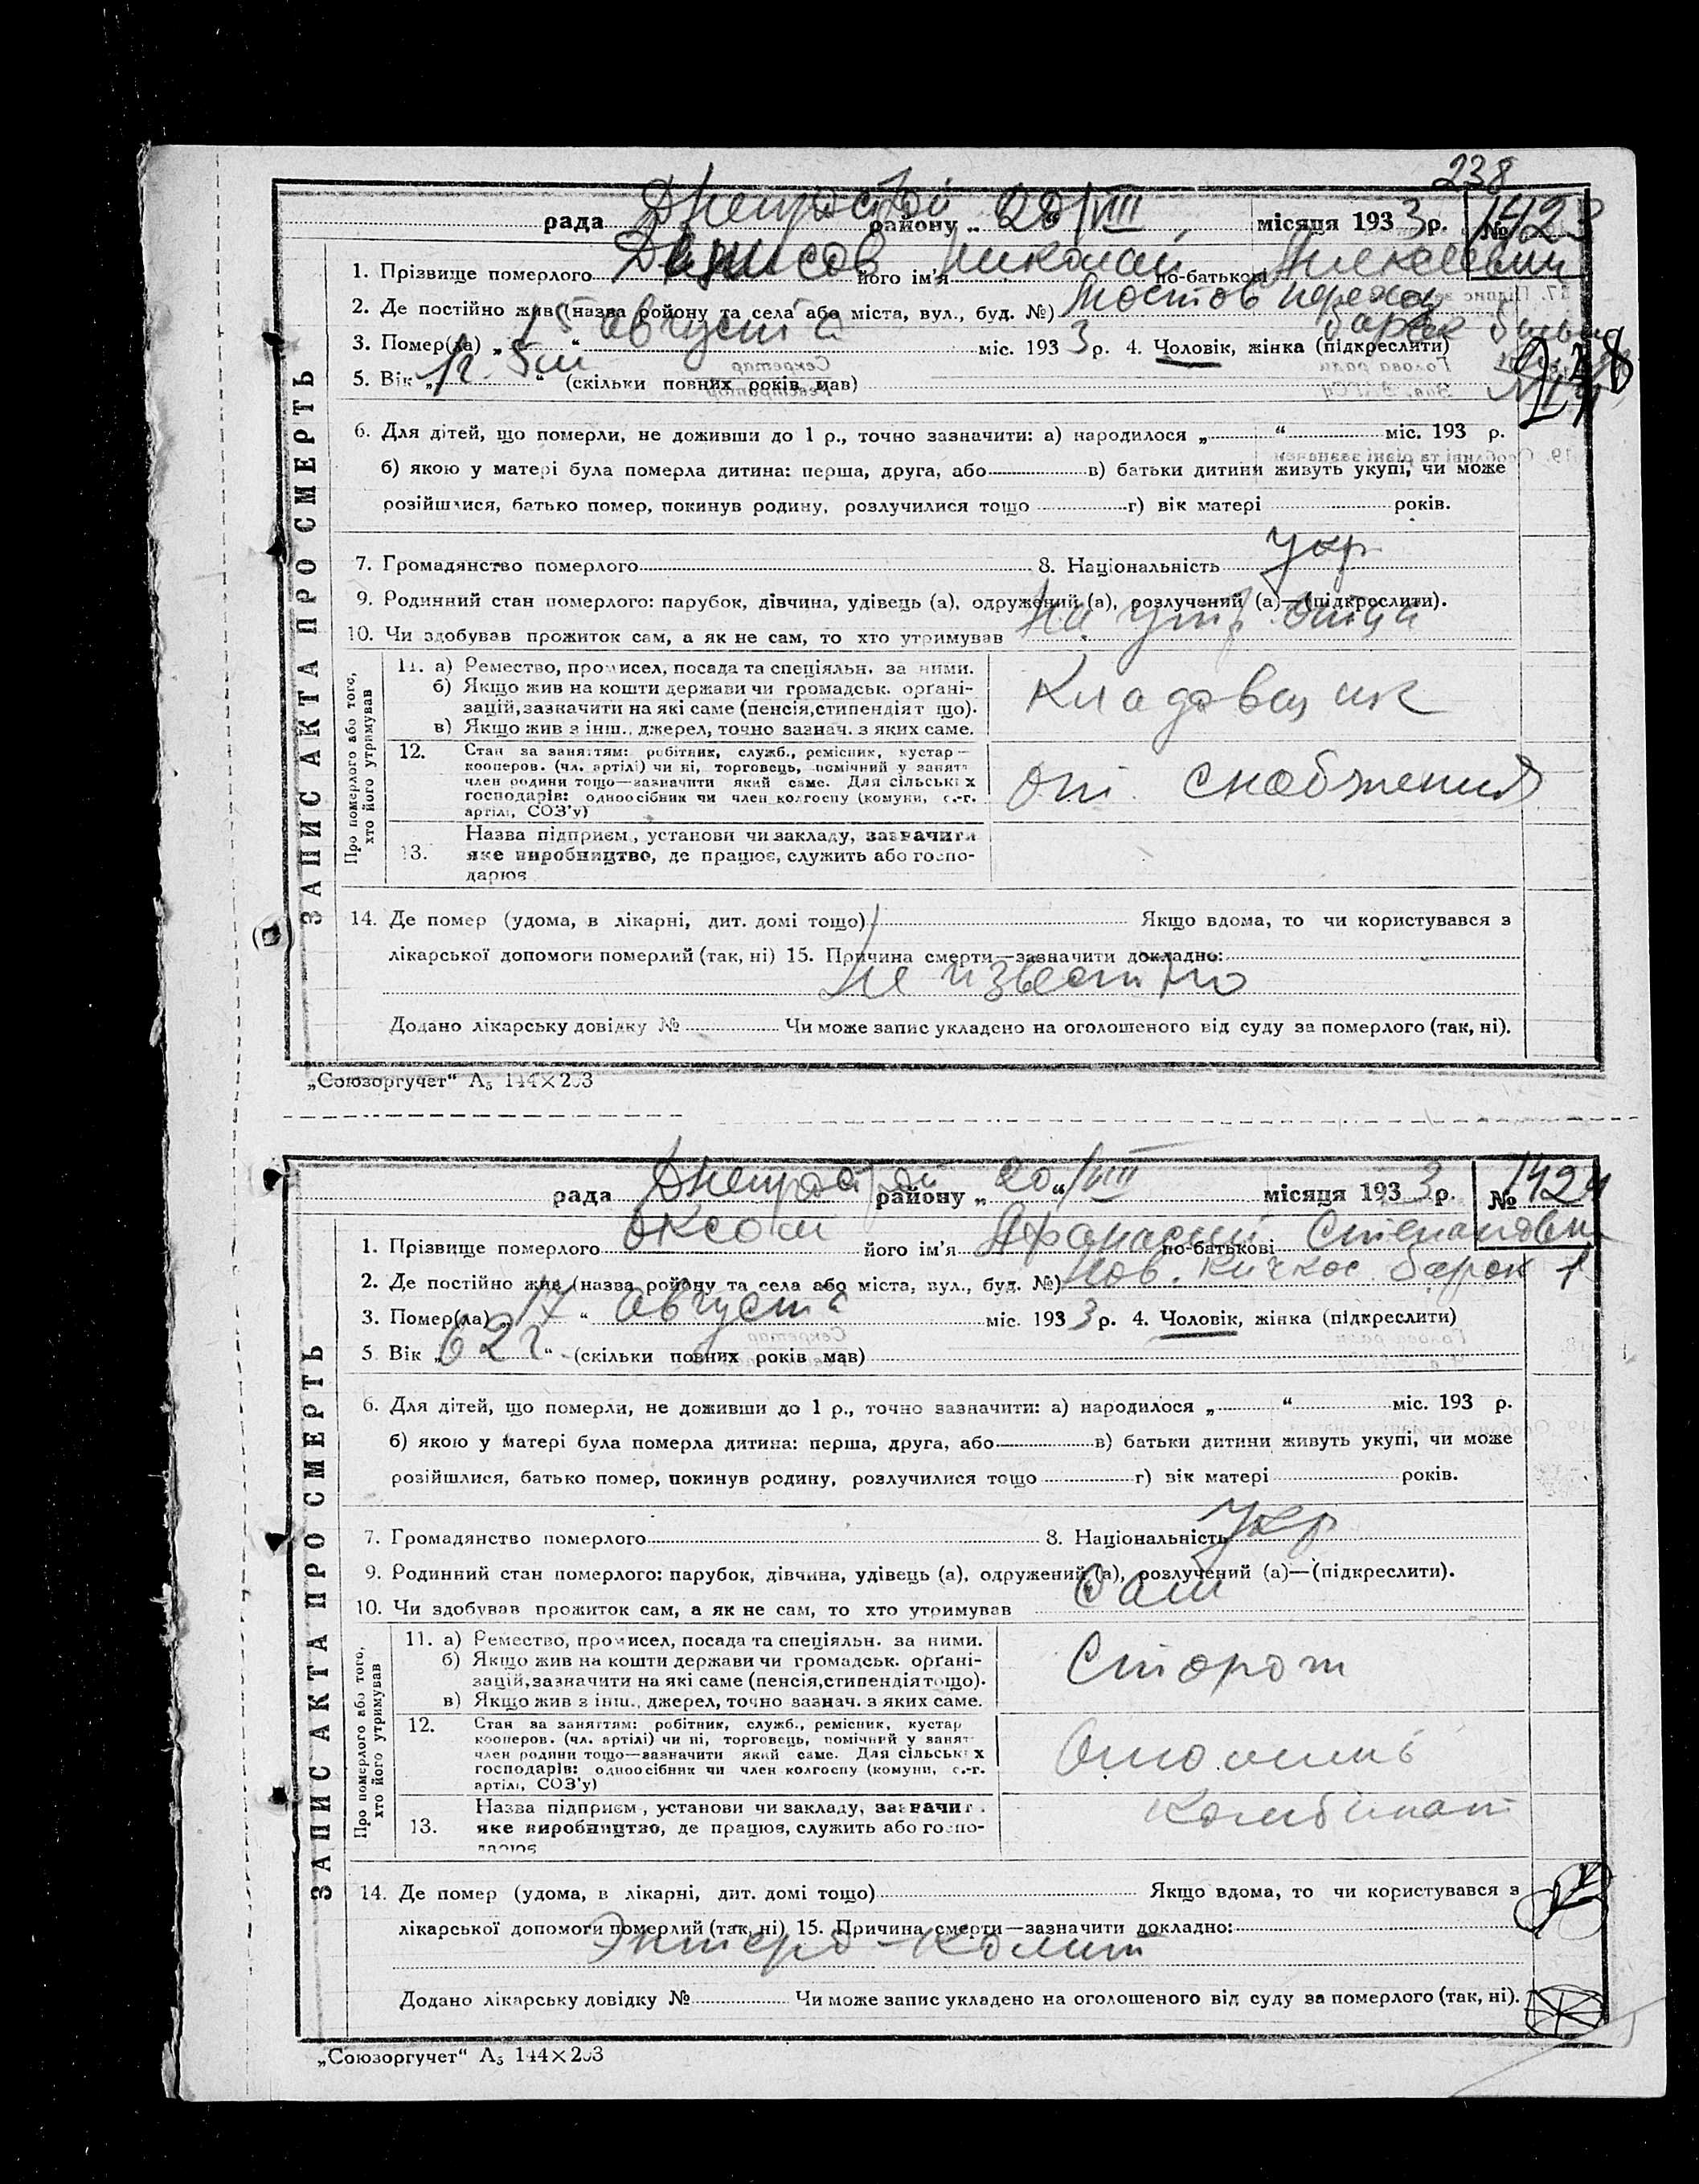 238
рада Днепрострой району „ 20/VIII “ місяця 1933 р. № 1423
1. Прізвище померлого Денисов його ім'я Николай по-батькові Алексеевич
2. Де постійно жив (назва району та села або міста, вул., буд. №) Мостов переход
барак
3. Помер(ла) „ 15 “ августа міс. 1933 р. 4. Чоловік, жінка (підкреслити)
238
5. Вік „ 1г. 5м “ (скільки повних років мав)
6. Для дітей, що померли, не доживши до 1 р., точно зазначити: а) народилося „ “ міс. 193 р.
б) якою у матері була померла дитина: перша, друга, або в) батьки дитини живуть укупі, чи може
розійшлися, батько помер, покинув родину, розлучилися тощо г) вік матері років.
7. Громадянство померлого 8. Національність Укр
9. Родинний стан померлого: парубок, дівчина, удівець (а), одружений (а), розлучений (а)—(підкреслити).
10. Чи здобував прожиток сам, а як не сам, то хто утримував На ижд. отца
ЗАПИС АКТА ПРО СМЕРТЬ
Про померлого або того, хто його утримував
11. а) Ремество, промисел, посада та спеціяльн. за ними.
б) Якщо жив на кошти держави чи громадськ. орґані-
зацій, зазначити на які саме (пенсія, стипендія т що).
в) Якщо жив з інш., джерел, точно зазнач. з яких саме.
Кладовщик
12. Стан за заняттям: робітник, служб., ремісник, кустар—
кооперов. (чл. артілі) чи ні, торговець, помічний у занят
член родини тощо—зазначити який саме. Для сільських
господарів: одноосібник чи член колгоспу (комуни, с.-г.
артілі, СОЗ'у)
от. снабжения
13. Назва підприєм., установи чи закладу, зазначити
яке виробництво, де працює, служить або госпо-
дарює
14. Де помер (удома, в лікарні, дит. домі тощо) Якщо вдома, то чи користувався з
лікарської допомоги померлий (так, ні) 15. Причина смерти—зазначити докладно:
Не известно
Додано лікарську довідку № Чи може запис укладено на оголошеного від суду за померлого (так, ні).
„Союзоргучет“ А5 144×203
рада Днепрострой району „ 20/VIII “ місяця 1933 р. № 1424
1. Прізвище померлого Оксом його ім'я Афанасий по-батькові Степанович
2. Де постійно жив (назва району та села або міста, вул., буд. №) Нов. Кичкас барак 1
3. Помер(ла) „ 17 “ августа міс. 1933 р. 4. Чоловік, жінка (підкреслити)
5. Вік „ 62 г. “ (скільки повних років мав)
6. Для дітей, що померли, не доживши до 1 р., точно зазначити: а) народилося „ “ міс. 193 р.
б) якою у матері була померла дитина: перша, друга, або в) батьки дитини живуть укупі, чи може
розійшлися, батько помер, покинув родину, розлучилися тощо г) вік матері років.
7. Громадянство померлого 8. Національність Укр
9. Родинний стан померлого: парубок, дівчина, удівець (а), одружений (а), розлучений (а)—(підкреслити).
10. Чи здобував прожиток сам, а як не сам, то хто утримував Сам
ЗАПИС АКТА ПРО СМЕРТЬ
Про померлого або того, хто його утримував
11. а) Ремество, промисел, посада та спеціяльн. за ними.
б) Якщо жив на кошти держави чи громадськ. орґані-
зацій, зазначити на які саме (пенсія, стипендія тощо).
в) Якщо жив з інш., джерел, точно зазнач. з яких саме.
Сторож
12. Стан за заняттям: робітник, служб., ремісник, кустар
кооперов. (чл. артілі) чи ні, торговець, помічний у занят
член родини тощо—зазначити який саме. Для сільських
господарів: одноосібник чи член колгоспу (комуни, с.-г.
артілі, СОЗ'у)
13. Назва підприєм., установи чи закладу, зазначит
яке виробництво, де працює, служить або госпо-
дарює
Комбинат
14. Де помер (удома, в лікарні, дит. домі тощо) Якщо вдома, то чи користувався з
лікарської допомоги померлий (так, ні) 15. Причина смерти—зазначити докладно:
Энтеро-колит
Додано лікарську довідку № Чи може запис укладено на оголошеного від суду за померлого (так, ні).
„Союзоргучет“ А5 144×203